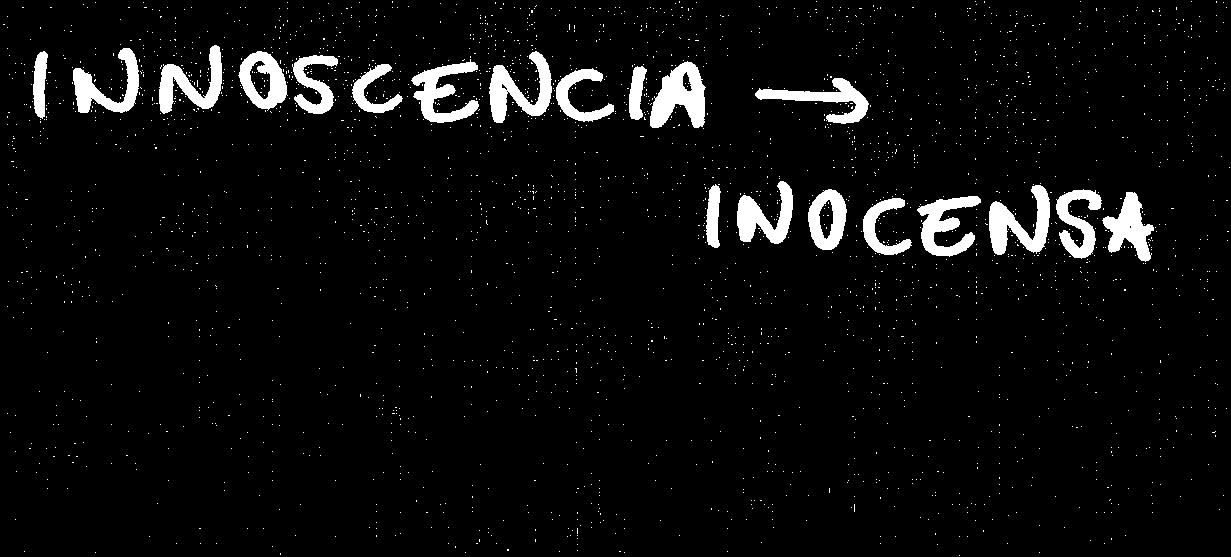 INNOSCENCIA →
INOCENSA